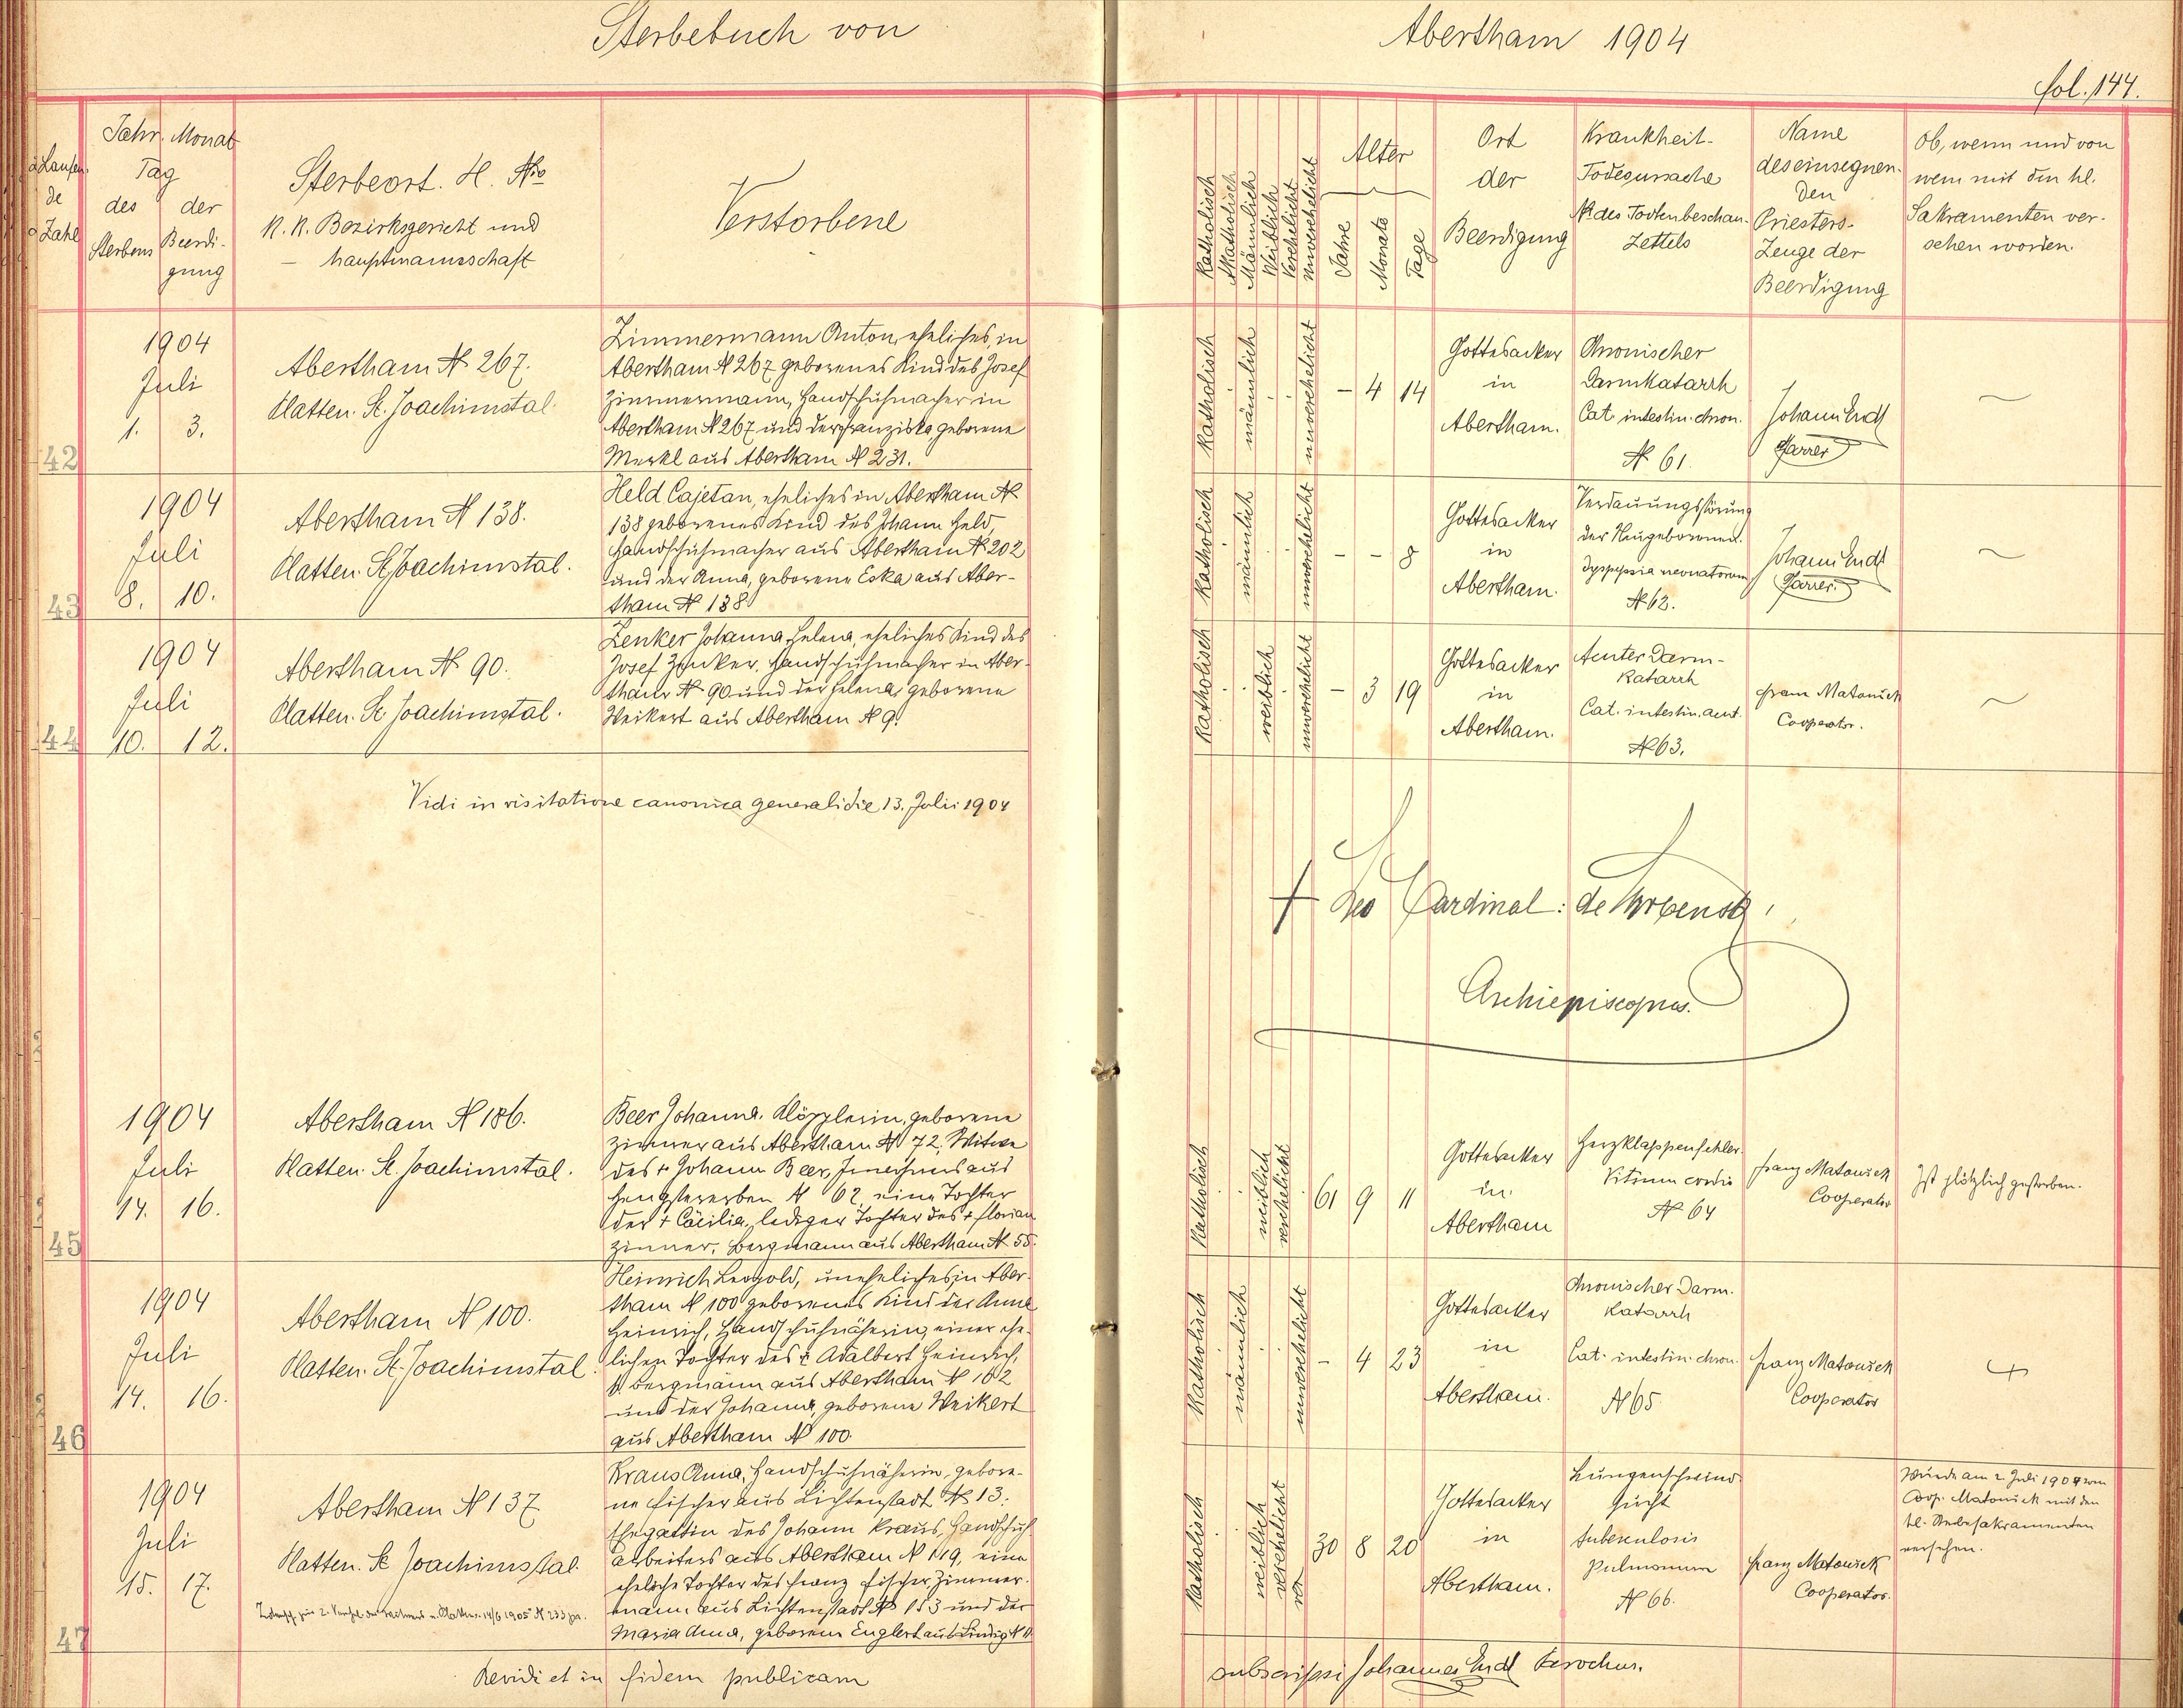 Sterbebuch von
Abertham 1904
fol. 144.
Laufen-
de
Zahl
Jahr. Monat
Tag
des der
Sterbens Beerdi-
gung
Sterbeort. H. Nro
K. K. Bezirksgericht und
– hauptmannschaft
Verstorbene
Katholisch
Akatholisch
Männlich
Weiblich
Verehelicht
unverehelicht
Alter
Jahre
Monate
Tage
Ort
der
Beerdigung
Krankheit-
Todesursache
№ des Todtenbeschau-
Zettels
Name
des einsegnen-
den
Priesters-
Zeuge der
Beerdigung
Ob, wenn und von
wem mit den hl.
Sakramenten ver-
sehen worden.
42
1904
Juli
1. 3.
Abertham № 267.
Platten. St. Joachimstal.
Zimmermann Anton, eheliches, in
Abertham № 267 geborenes Kind des Josef
Zimmermann, Handschuhmacher in
Abertham № 267 und der Franziska, geborene
Merkl aus Abertham № 231.
Katholisch
männlich
unverehelicht
– 4 14
Gottesacker
in
Abertham.
Chronischer
Darmkatarrh
Cat. intestin. chron.
№ 61.
Johann Endt
Pfarrer
43
1904
Juli
8. 10.
Abertham № 138.
Platten. St. Joachimstal.
Held Cajetan, eheliches in Abertham №
138 geborenes Kind des Johann Held,
Handschuhmacher aus Abertham № 202
und der Anna, geborene Eska aus Aber-
tham № 138
Katholisch
männlich
unverehelicht
– – 8
Gottesacker
in
Abertham.
Verdauungsstörung
der Neugeborenen.
Dyspepsia neonatorum
№ 62.
Johann Endt
Pfarrer.
44
1904
Juli
10. 12.
Abertham № 90.
Platten. St. Joachimstal.
Zenker Johanna Helena, eheliches Kind des
Josef Zenker, Handschuhmacher in Aber-
tham № 90 und der Helena, geborene
Weikert aus Abertham № 9.
Katholisch
weiblich
unverehelicht
– 3 19
Gottesacker
in
Abertham.
Acuter Darm-
katarrh
Cat. intestin. acut.
№ 63.
Franz Matousek
Cooperator.
Vidi in visitatione canonica generali die 13. Julii 1904
+ Leo Cardinal: de Skrbensky
Archiepiscopus.
45
1904
Juli
14. 16.
Abertham № 186.
Platten. St. Joachimstal.
Beer Johanna. Klöpplerin, geborene
Zinner aus Abertham № 72, Witwe
des + Johann Beer, Inwohners aus
Hengstererben № 62, eine Tochter
der + Cäcilia, lediger Tochter des + Florian
Zinner, Bergmann aus Abertham № 55.
Katholisch
weiblich
verehelicht
61 9 11
Gottesacker
in
Abertham
Herzklappenfehler
Vitium cordis
№ 64
Franz Matousek
Cooperator
Ist plötzlich gestorben.
46
1904
Juli
14. 16.
Abertham № 100.
Platten. St. Joachimstal.
Heinrich Leopold, uneheliches, in Aber-
tham № 100 geborenes Kind der Anna
Heinrich, Handschuhnäherin, einer ehe-
lichen Tochter des + Adalbert Heinrich,
Bergmann aus Abertham № 162
und der Johanna, geborene Weikert
aus Abertham № 100.
Katholisch
männlich
unverehelicht
– 4 23
Gottesacker
in
Abertham.
Chronischer Darm-
katarrh
Cat. intestin. chron.
№ 65
Franz Matousek
Cooperator
47
1904
Juli
15. 17.
Abertham № 137
Platten. St. Joachimstal.
Kraus Anna, Handschuhnäherin, gebore-
ne Fischer aus Lichtenstadt № 13.
Ehegattin des Johann Kraus, Handschuh-
arbeiters aus Abertham № 119, eine
eheliche Tochter des Franz Fischer Zimmer-
mann aus Lichtenstadt № 153 und der
Maria Anna, geborene Englert aus Lindig № 11
Katholisch
weiblich
verehelicht
30 8 20
Gottesacker
in
Abertham.
Lungenschwind-
sucht
tuberculosis
pulmonum
№ 66.
Franz Matousek
Cooperator.
Wurde am 2. Juli 1904 von
Coop. Matousek mit den
hl. Sterbesakramenten
versehen.
Revidi et in fidem publicam
subscripsi Johannes Endt Parochus.